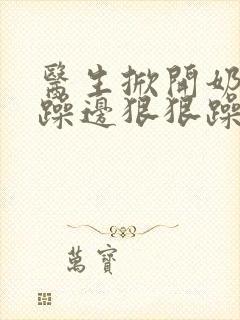 醫生掀開奶
躁邊狠狠躁
萬寶